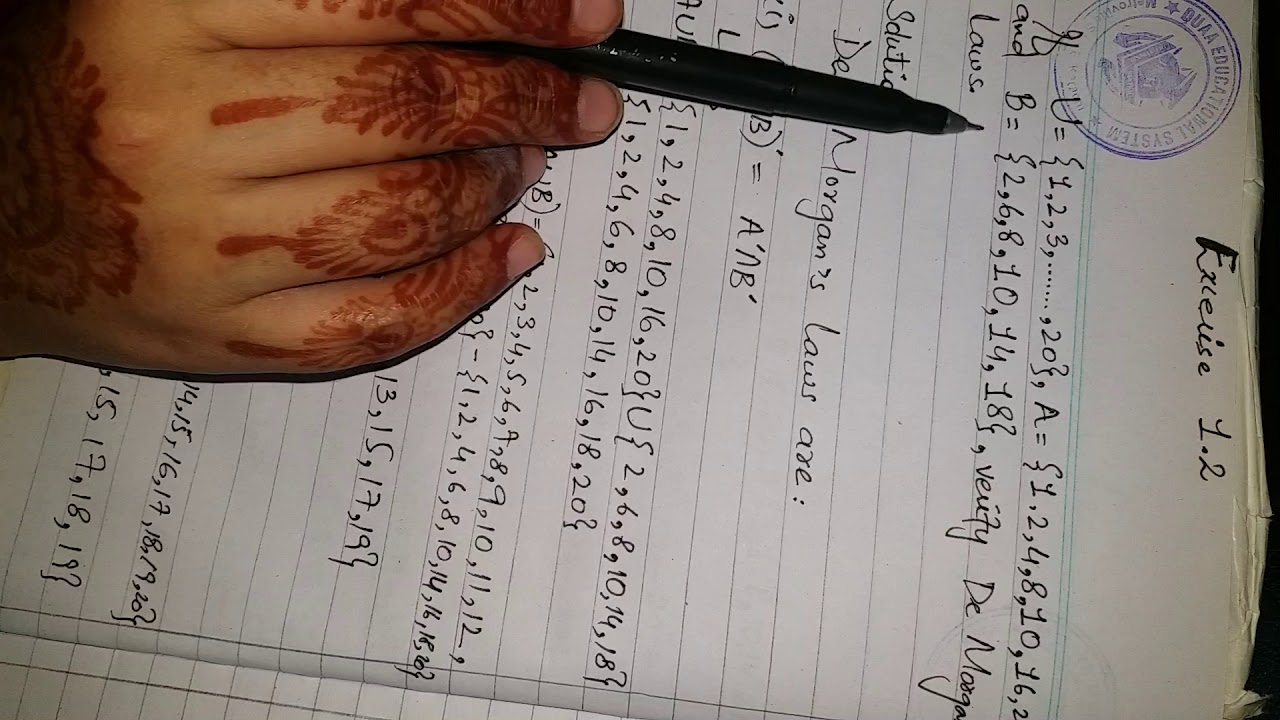 Exercise 1.2
DUAA EDUCATIONAL SYSTEM
If U = {1,2,3,.......,20}, A = {1,2,4,8,10,16,2
and B = {2,6,8,10,14,18}, verify De Morga
Laws
Solutio
De Morgan's laws are:
B)' = A'∩B'
{1,2,4,8,10,16,20}U{2,6,8,10,14,18}
{1,2,4,6,8,10,14,16,18,20}
B)' = 2,3,4,5,6,7,8,9,10,11,12,
} - {1,2,4,6,8,10,14,16,18,20}
13,15,17,19}
14,15,16,17,18,19,20}
,15,17,18,19}